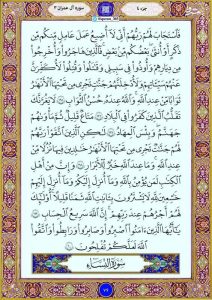 جزء ٤
سورة آل عمران ٣
فَٱسْتَجَابَ لَهُمْ رَبُّهُمْ أَنِّى لَآ أُضِيعُ عَمَلَ عَٰمِلٍ مِّنكُم مِّن
ذَكَرٍ أَوْ أُنثَىٰ بَعْضُكُم مِّنۢ بَعْضٍ فَٱلَّذِينَ هَاجَرُوا۟ وَأُخْرِجُوا۟
مِن دِيَٰرِهِمْ وَأُوذُوا۟ فِى سَبِيلِى وَقَٰتَلُوا۟ وَقُتِلُوا۟ لَأُكَفِّرَنَّ
عَنْهُمْ سَيِّـَٔاتِهِمْ وَلَأُدْخِلَنَّهُمْ جَنَّٰتٍ تَجْرِى مِن تَحْتِهَا ٱلْأَنْهَٰرُ
ثَوَابًا مِّنْ عِندِ ٱللَّهِ وَٱللَّهُ عِندَهُۥ حُسْنُ ٱلثَّوَابِ ١٩٥ لَا يَغُرَّنَّكَ
تَقَلُّبُ ٱلَّذِينَ كَفَرُوا۟ فِى ٱلْبِلَٰدِ ١٩٦ مَتَٰعٌ قَلِيلٌ ثُمَّ مَأْوَىٰهُمْ
جَهَنَّمُ وَبِئْسَ ٱلْمِهَادُ ١٩٧ لَٰكِنِ ٱلَّذِينَ ٱتَّقَوْا۟ رَبَّهُمْ
لَهُمْ جَنَّٰتٌ تَجْرِى مِن تَحْتِهَا ٱلْأَنْهَٰرُ خَٰلِدِينَ فِيهَا نُزُلًا مِّنْ
عِندِ ٱللَّهِ وَمَا عِندَ ٱللَّهِ خَيْرٌ لِّلْأَبْرَارِ ١٩٨ وَإِنَّ مِنْ أَهْلِ
ٱلْكِتَٰبِ لَمَن يُؤْمِنُ بِٱللَّهِ وَمَآ أُنزِلَ إِلَيْكُمْ وَمَآ أُنزِلَ إِلَيْهِمْ
خَٰشِعِينَ لِلَّهِ لَا يَشْتَرُونَ بِـَٔايَٰتِ ٱللَّهِ ثَمَنًا قَلِيلًا أُو۟لَٰٓئِكَ
لَهُمْ أَجْرُهُمْ عِندَ رَبِّهِمْ إِنَّ ٱللَّهَ سَرِيعُ ٱلْحِسَابِ ١٩٩
يَٰٓأَيُّهَا ٱلَّذِينَ ءَامَنُوا۟ ٱصْبِرُوا۟ وَصَابِرُوا۟ وَرَابِطُوا۟ وَٱتَّقُوا۟
ٱللَّهَ لَعَلَّكُمْ تُفْلِحُونَ ٢٠٠
سُورَةُ النِّسَاءِ
٧٦